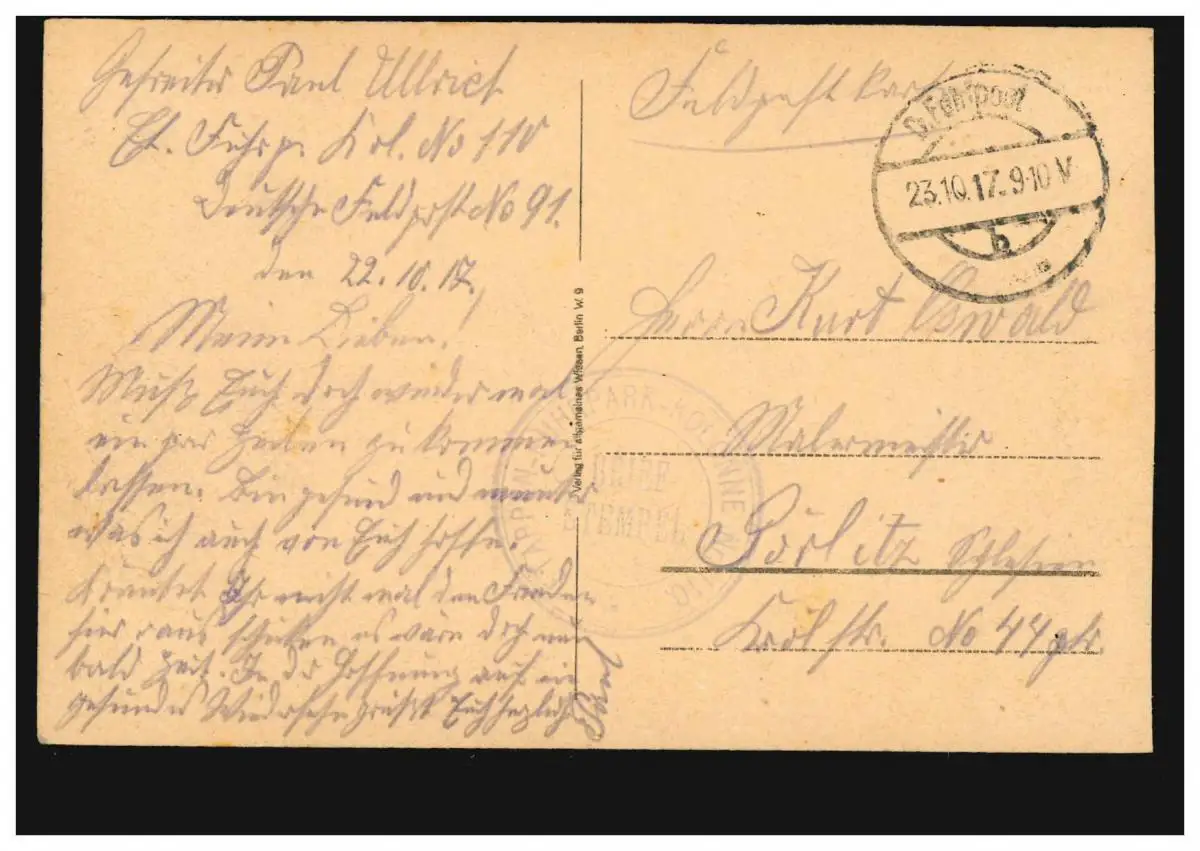 Gefreiter Paul Ullrich
Et. Fuhrp. Kol. No 110
Deutsche Feldpost No 91.
den 22.10.17.
Meine Lieben!
Muß Euch doch wieder mal
ein par Zeilen zu kommen
lassen. Bin gesund und munter
was ich auch von Euch hoffe.
Könntet Ihr nicht mal den Frieden
hier raus schicken es wäre doch nun
bald Zeit. In der Hoffnung auf ein
gesundes Wiedersehn grüßt Euch herzlich
Paul
Verlag für Allgemeines Wissen, Berlin W. 9
Feldpostkarte
D. Feldpost
23.10.17.9-10 V
b
Herrn Kurt Oswald
Malermeister
Görlitz Schlesien
Krölstr. No 44 ptr.
PARK-KOLONNE
BRIEF-
STEMPEL